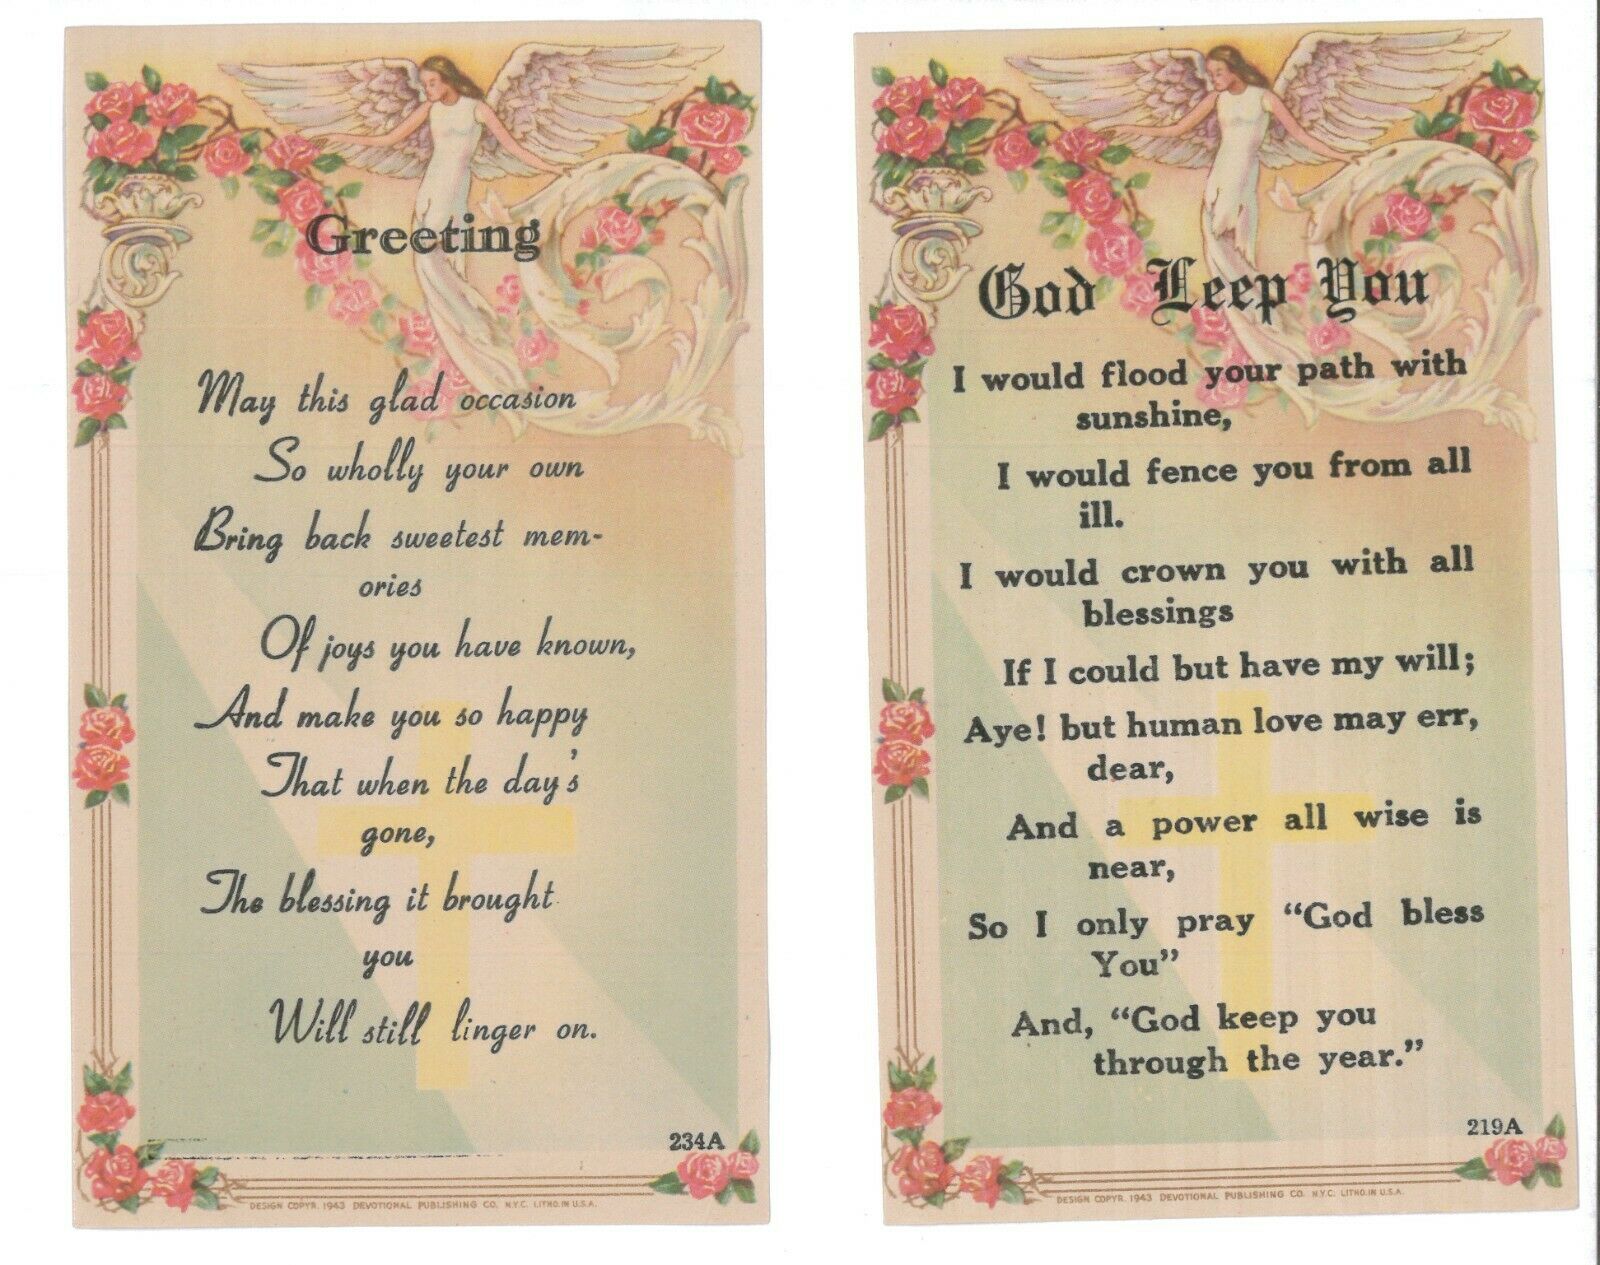 Greeting
May this glad occasion
So wholly your own
Bring back sweetest mem-
ories
Of joys you have known,
And make you so happy
That when the day's
gone,
The blessing it brought
you
Will still linger on.
234A
DESIGN COPYR. 1943 DEVOTIONAL PUBLISHING CO. N.Y.C. LITHO.IN U.S.A.
God Leep You
I would flood your path with
sunshine,
I would fence you from all
ill.
I would crown you with all
blessings
If I could but have my will;
Aye! but human love may err,
dear,
And a power all wise is
near,
So I only pray “God bless
You”
And, “God keep you
through the year.”
219A
DESIGN COPYR. 1943 DEVOTIONAL PUBLISHING CO. N.Y.C. LITHO.IN U.S.A.